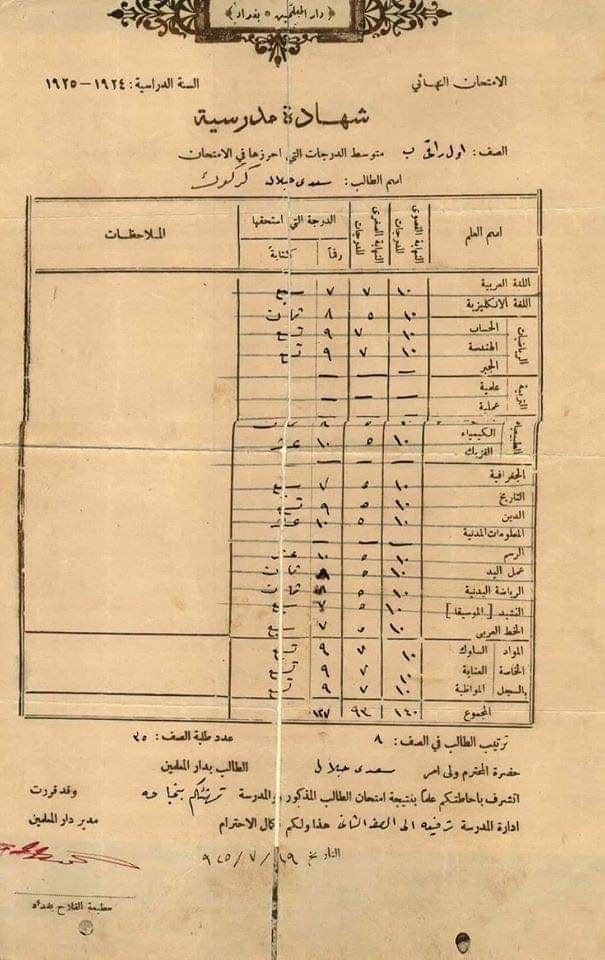 دار المعلمين * بغداد
الامتحان النهائي
السنة الدراسية: ١٩٢٤ - ١٩٢٥
شهادة مدرسية
الصف: اول راقي ب متوسط الدرجات التي احرزها في الامتحان
اسم الطالب: سعدي جلال كركوك
اسم العلم النهاية القصوى للدرجات النهاية الصغرى للدرجات الدرجة التي استحقها رقماً كتابة الملاحظات
اللغة العربية ١٠ ٧ ٧ سبع
اللغة الانكليزية ١٠ ٥ ٨ ثمان
الرياضيات
الحساب ١٠ ٧ ٩ تسع
الهندسة ١٠ ٧ ٩ تسع
الجبر — — —
التربية
علمية — — —
عملية — — —
الطبيعيات
الكيمياء ١٠ ٥ ١٠ عشر
الفزيك — — —
الجغرافية ١٠ ٥ ٧ سبع
التاريخ ١٠ ٥ ٩ تسع
الدين ١٠ ٥ ١٠ عشر
المعلومات المدنية — — —
الرسم ١٠ ٥ ١٠ عشر
عمل اليد ١٠ ٥ ٨ ثمان
الرياضة البدنية ١٠ ٥ ٨ ثمان
النشيد [الموسيقا] ١٠ ٥ ٧ سبع
الخط العربى ١٠ ٥ ٧ سبع
المواد الخاصة بالسجل
السلوك ١٠ ٧ ٩ تسع
العناية ١٠ ٧ ٩ تسع
المواظبة ١٠ ٧ ٩ تسع
المجموع ١٤٠ ٩٣ ١٢٧
ترتيب الطالب في الصف: ٨ عدد طلبة الصف: ٣٥
حضرة المحترم ولى امر سعدي جلال الطالب بدار المعلمين
اتشرف باحاطتكم علماً بنتيجة امتحان الطالب المذكور والمدرسة تهنئكم بنجاحه وقد قررت
ادارة المدرسة ترفيعه الى الصف الثاني هذا ولكم كمال الاحترام مدير دار المعلمين
التاريخ ١٩/٧/٩٢٥
مطبعة الفلاح بغداد